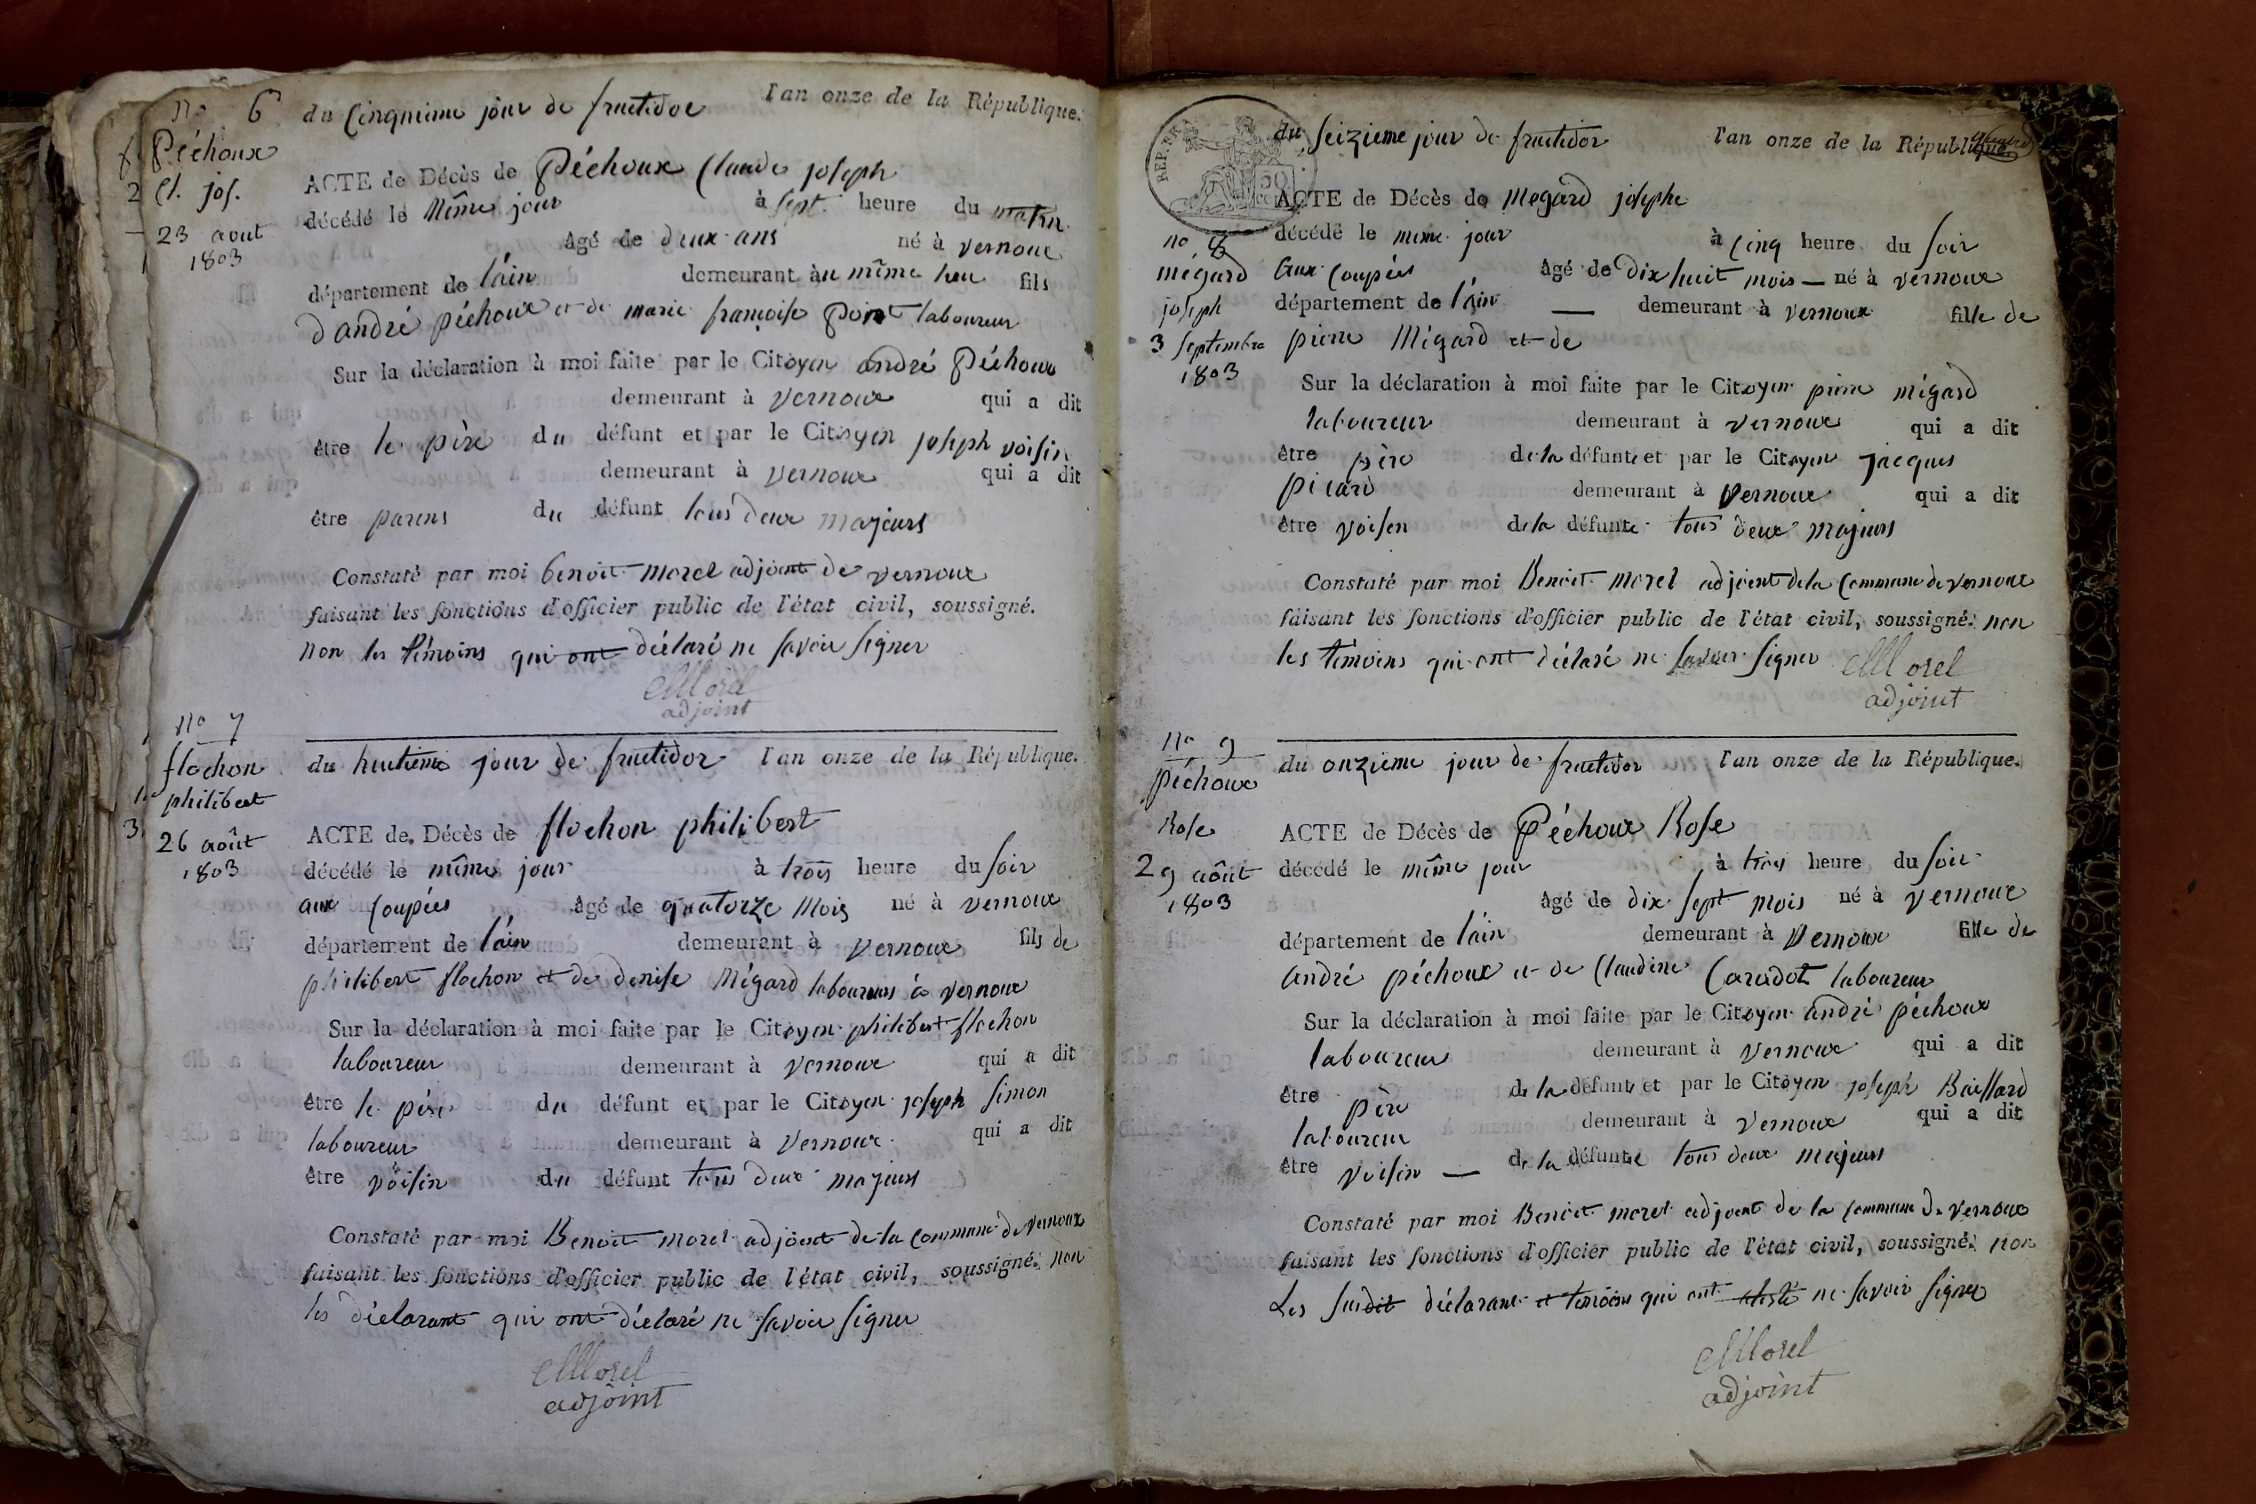 n° 6
Péchoux
Cl. jos.
23 aout
1803
du cinquieme jour de fructidor l'an onze de la République.
ACTE de Décès de Péchoux Claude joseph
décédé le même jour à sept heure du matin
âgé de deux ans né à vernoux
département de l'ain demeurant au même lieu fils
d'andré péchoux et de marie françoise Point laboureur
Sur la déclaration à moi faite par le Citoyen andré Péchoux
demeurant à vernoux qui a dit
être le père du défunt et par le Citoyen joseph voisin
demeurant à vernoux qui a dit
être parens du défunt tous deux majeurs
Constaté par moi benoit morel adjoint de vernoux
faisant les fonctions d'officier public de l'état civil, soussigné.
non les témoins qui ont déclaré ne savoir signer
Morel
adjoint
n° 7
flochon
philibert
26 août
1803
du huitieme jour de fructidor l'an onze de la République.
ACTE de Décès de flochon philibert
décédé le même jour à trois heure du soir
aux Coupées âgé de quatorze mois né à vernoux
département de l'ain demeurant à vernoux fils de
philibert flochon et de denise Mégard laboureurs à vernoux
Sur la déclaration à moi faite par le Citoyen philibert flochon
laboureur demeurant à vernoux qui a dit
être le père du défunt et par le Citoyen joseph simon
laboureur demeurant à vernoux qui a dit
être voisin du défunt tous deux majeurs
Constaté par moi Benoit morel adjoint de la commune de vernoux
faisant les fonctions d'officier public de l'état civil, soussigné. non
les déclarant qui ont déclaré ne savoir signer
Morel
adjoint
REP. FRA
50
n° 8
mégard
joseph
3 septembre
1803
du seizieme jour de fructidor l'an onze de la République
ACTE de Décès de Megard josephe
décédé le meme jour à cinq heure du soir
aux Coupées âgé de dix huit mois — né à vernoux
département de l'ain — demeurant à vernoux fille de
pierre Mégard et de
Sur la déclaration à moi faite par le Citoyen pierre mégard
laboureur demeurant à vernoux qui a dit
être père de la défunte et par le Citoyen jacques
picard demeurant à vernoux qui a dit
être voisen de la défunte tous deux majeurs
Constaté par moi Benoit morel adjoint de la Commune de vernoux
faisant les fonctions d'officier public de l'état civil, soussigné. non
les témoins qui ont déclaré ne savoir signer Morel
adjoint
n° 9
péchoux
Rose
29 août
1803
du onzieme jour de fructidor l'an onze de la République.
ACTE de Décès de Péchoux Rose
décédé le même jour à trois heure du soir
âgé de dix sept mois né à vernoux
département de l'ain demeurant à vernoux fille de
andré péchoux et de Claudine Caradot laboureur
Sur la déclaration à moi faite par le Citoyen andré péchoux
laboureur demeurant à vernoux qui a dit
être père de la défunte et par le Citoyen joseph Baillard
laboureur demeurant à vernoux qui a dit
être voisin — de la défunte tous deux majeurs
Constaté par moi Benoit morel adjoint de la commune de vernoux
faisant les fonctions d'officier public de l'état civil, soussigné. non
Les susdit déclarant et temoins qui ont ne savoir signer
Morel
adjoint